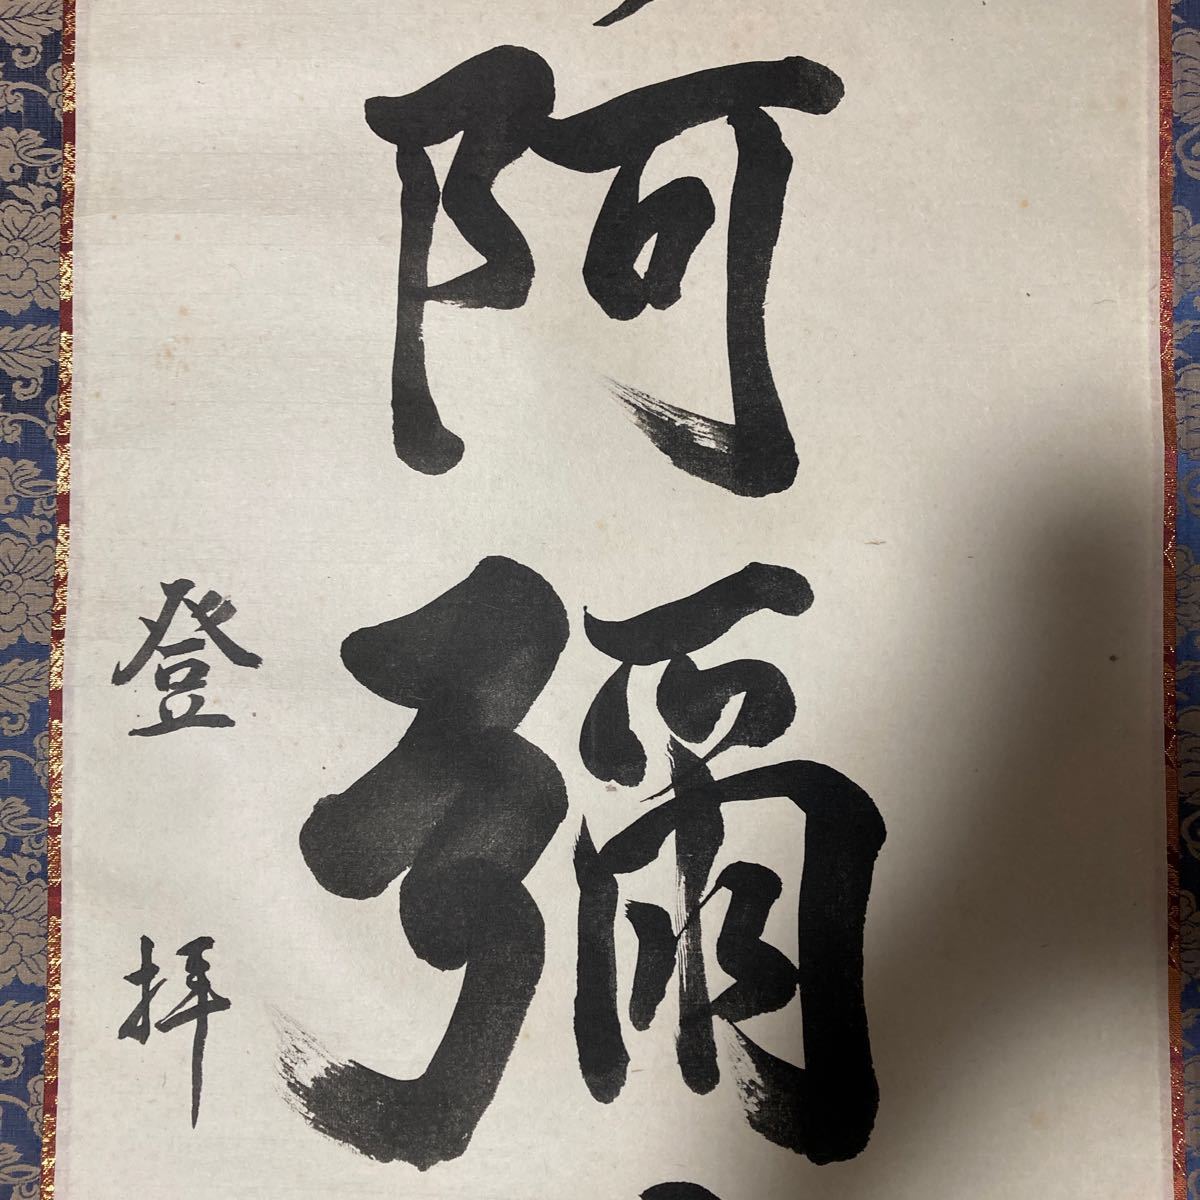 阿彌
登拝